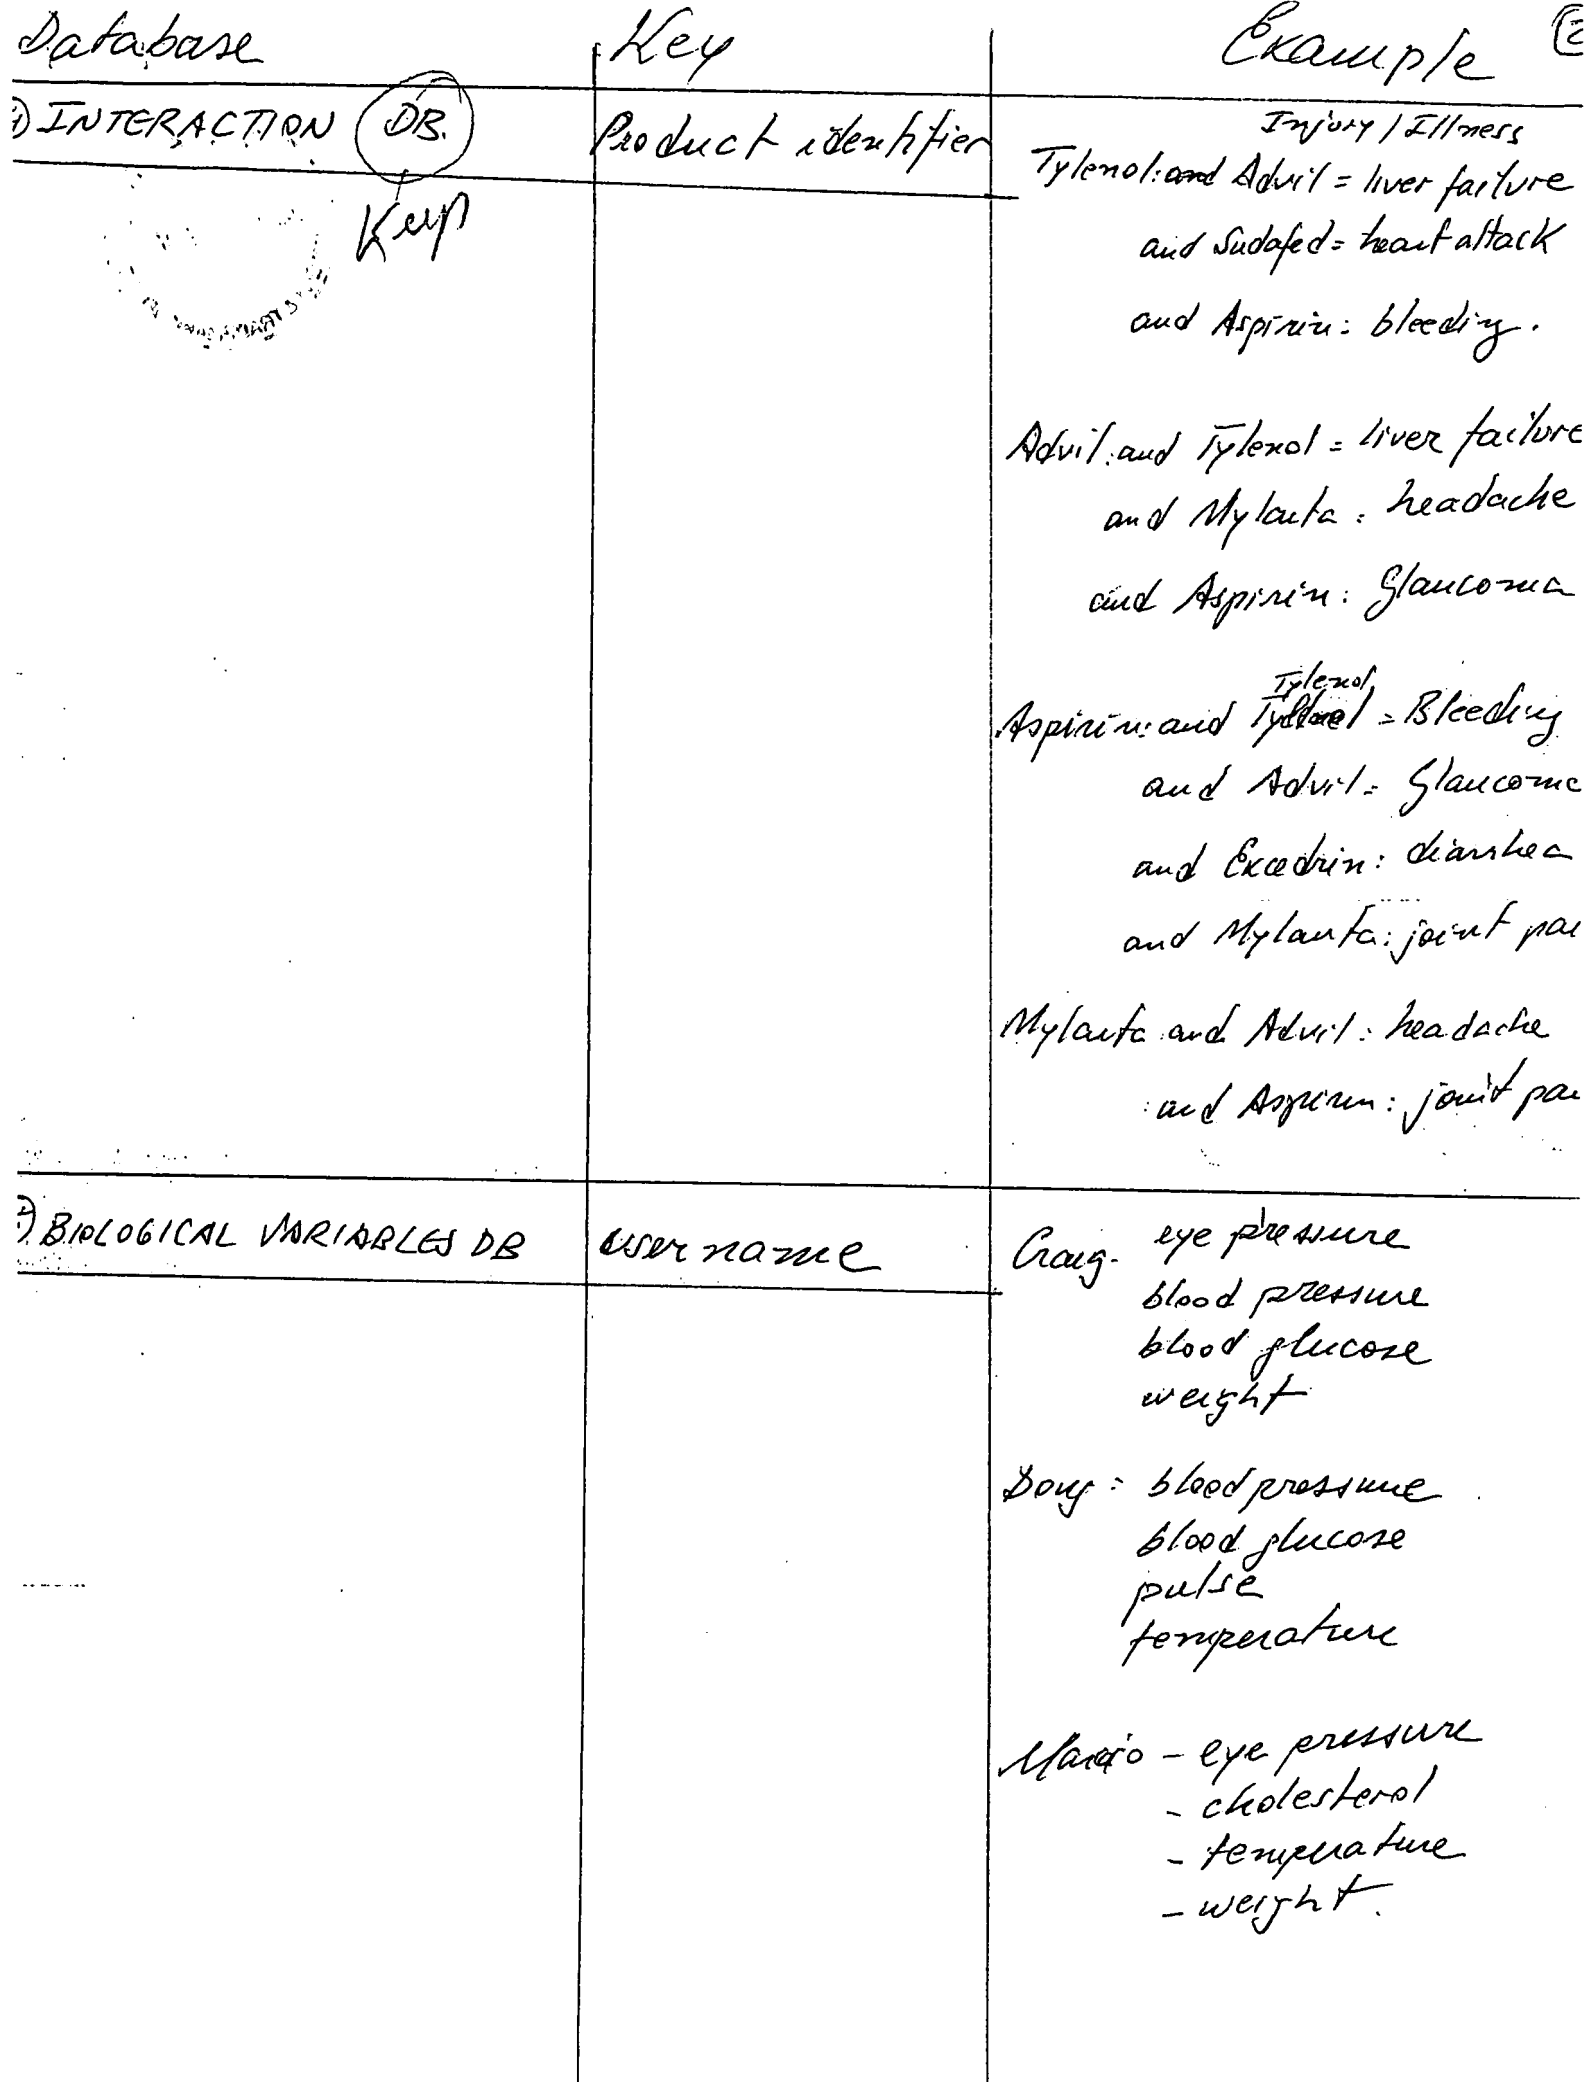 Database Key Example
INTERACTION DB. Product identifier Injury / Illness
Keep
Tylenol: and Advil = liver failure
and Sudafed = heart attack
and Aspirin: bleeding.
Advil: and Tylenol = liver failure
and Mylanta: headache
and Aspirin: Glaucoma
Tylenol
Aspirin: and = Bleeding
and Advil = Glaucoma
and Excedrin: diarrhea
and Mylanta: joint pai
Mylanta and Advil: headache
: and Aspirin: joint pai
BIOLOGICAL VARIABLES DB username Craig- eye pressure
blood pressure
blood glucose
weight
Doug: blood pressure
blood glucose
pulse
temperature
- eye pressure
- cholesterol
- temperature
- weight.